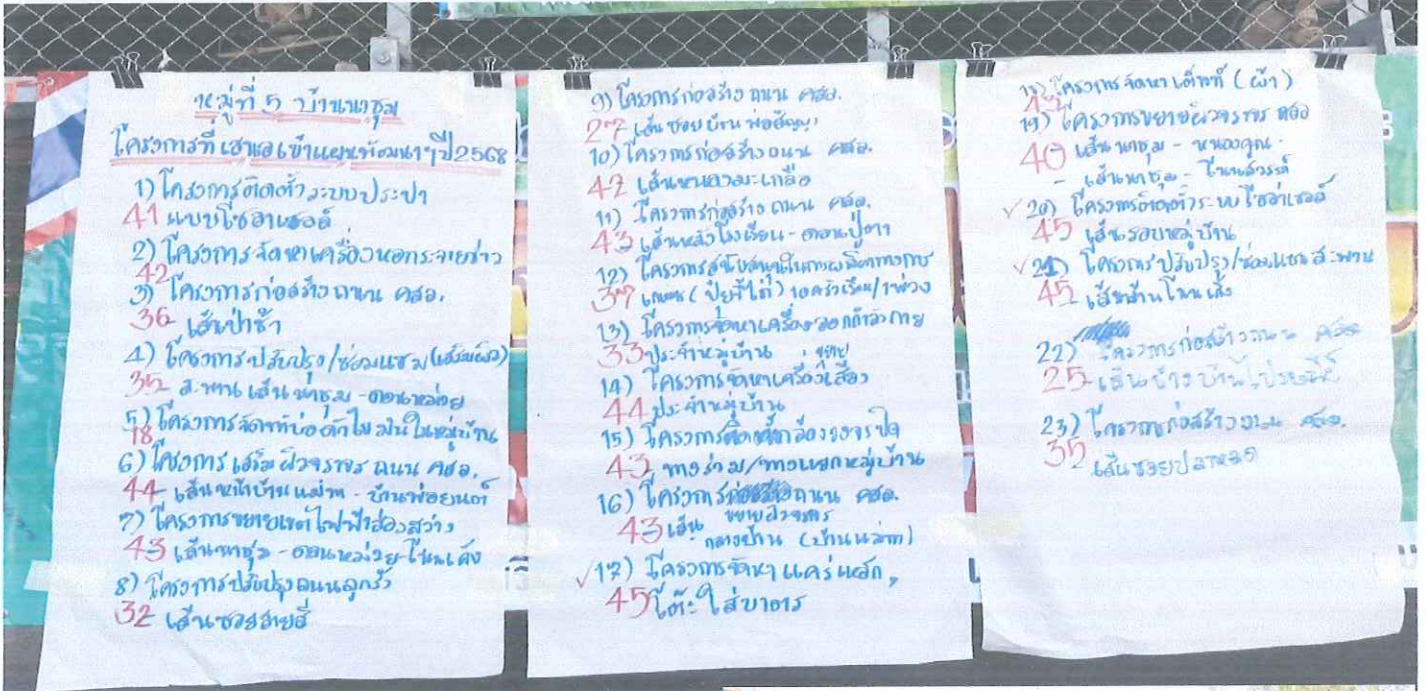 หมู่ที่ 5 บ้านนาชุม
โครงการที่เสนอเข้าแผนพัฒนาฯปี2568
1) โครงการติดตั้งระบบประปา
41 แบบโซลาเซลล์
2) โครงการจัดหาเครื่องหอกระจายข่าว
42
3) โครงการก่อสร้างถนน คสล.
36 เส้นป่าช้า
4) โครงการปรับปรุง/ซ่อมแซม(เสริมผิว)
35 สะพานเส้นนาชุม - ดอนหม่วย
5) โครงการจัดทำบ่อดักไขมันในหมู่บ้าน
18
6) โครงการเสริมผิวจราจรถนน คสล.
44 เส้นหน้าบ้านแม่ทา - บ้านพ่อยนต์
7) โครงการขยายเขตไฟฟ้าส่องสว่าง
43 เส้นนาชุม - ดอนหม่วย - โนนเค็ง
8) โครงการปรับปรุงถนนลูกรัง
32 เส้นซอยสายสี
9) โครงการก่อสร้างถนน คสล.
27 เส้นซอยบ้านพ่ออัญญา
10) โครงการก่อสร้างถนน คสล.
42 เส้นหนองมะเกลือ
11) โครงการก่อสร้างถนน คสล.
43 เส้นหลังโรงเรียน - ดอนปู่ตา
12) โครงการสนับสนุนในการผลิตทางการ
37 เกษตร (ปุ๋ยขี้ไก่) 10ครัวเรือน/1พ่วง
13) โครงการจัดหาเครื่องออกกำลังกาย
33 ประจำหมู่บ้าน
14) โครงการจัดหาเครื่องขยายเสียง
44 ประจำหมู่บ้าน
15) โครงการติดตั้งกล้องวงจรปิด
43 ทางร่วม/ทางแยกหมู่บ้าน
16) โครงการถนน คสล.
ขยายผิวจราจร
43 เส้นกลางบ้าน (บ้านแม่ทา)
✓17) โครงการจัดหาแคร่เหล็ก,
45 โต๊ะใส่บาตร
18) โครงการจัดหาเต็นท์ (ผ้า)
42
19) โครงการขยายผิวจราจร คสล
40 เส้นนาชุม - หนองคูณ.
- เส้นนาชุม - โนนสวรรค์
✓20) โครงการติดตั้งระบบโซล่าเซลล์
45 เส้นรอบหมู่บ้าน
✓21) โครงการปรับปรุง/ซ่อมแซมสะพาน
45 เส้นบ้านโนนเค็ง
22) โครงการก่อสร้างถนน คสล
25 เส้นข้างบ้านไปรษณีย์
23) โครงการก่อสร้างถนน คสล.
35 เส้นซอยปลาหลด